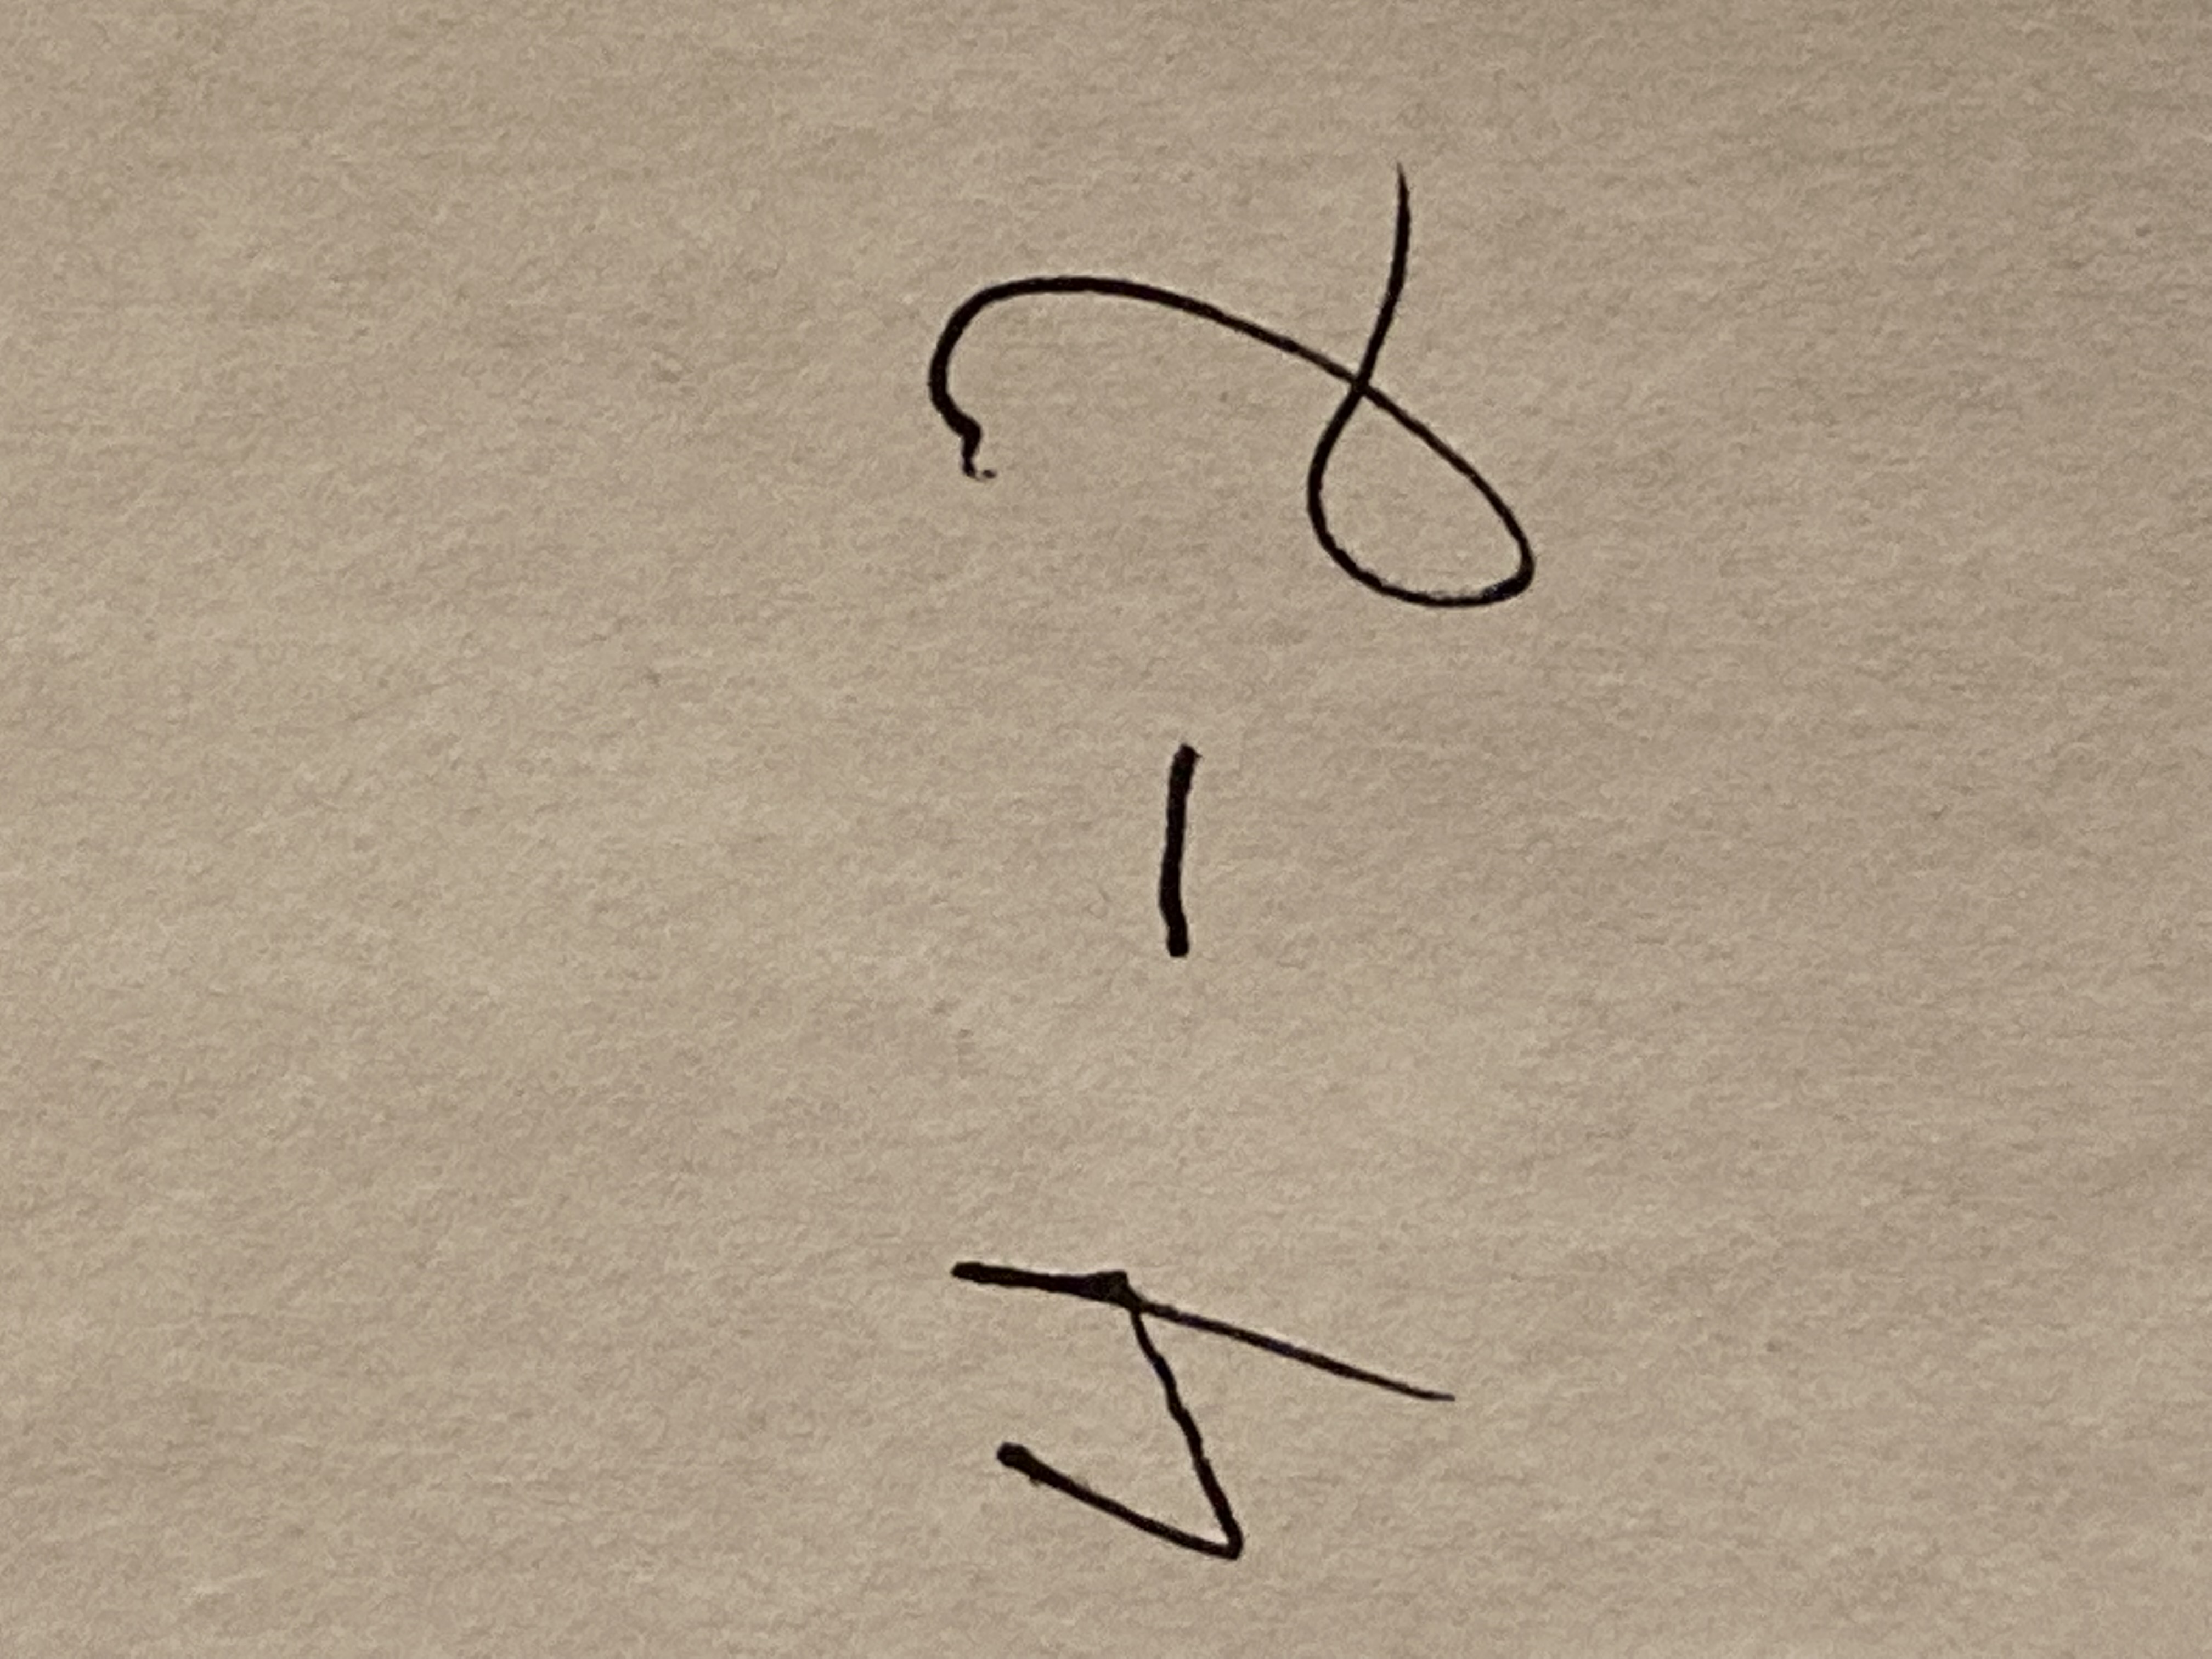 4 - 2